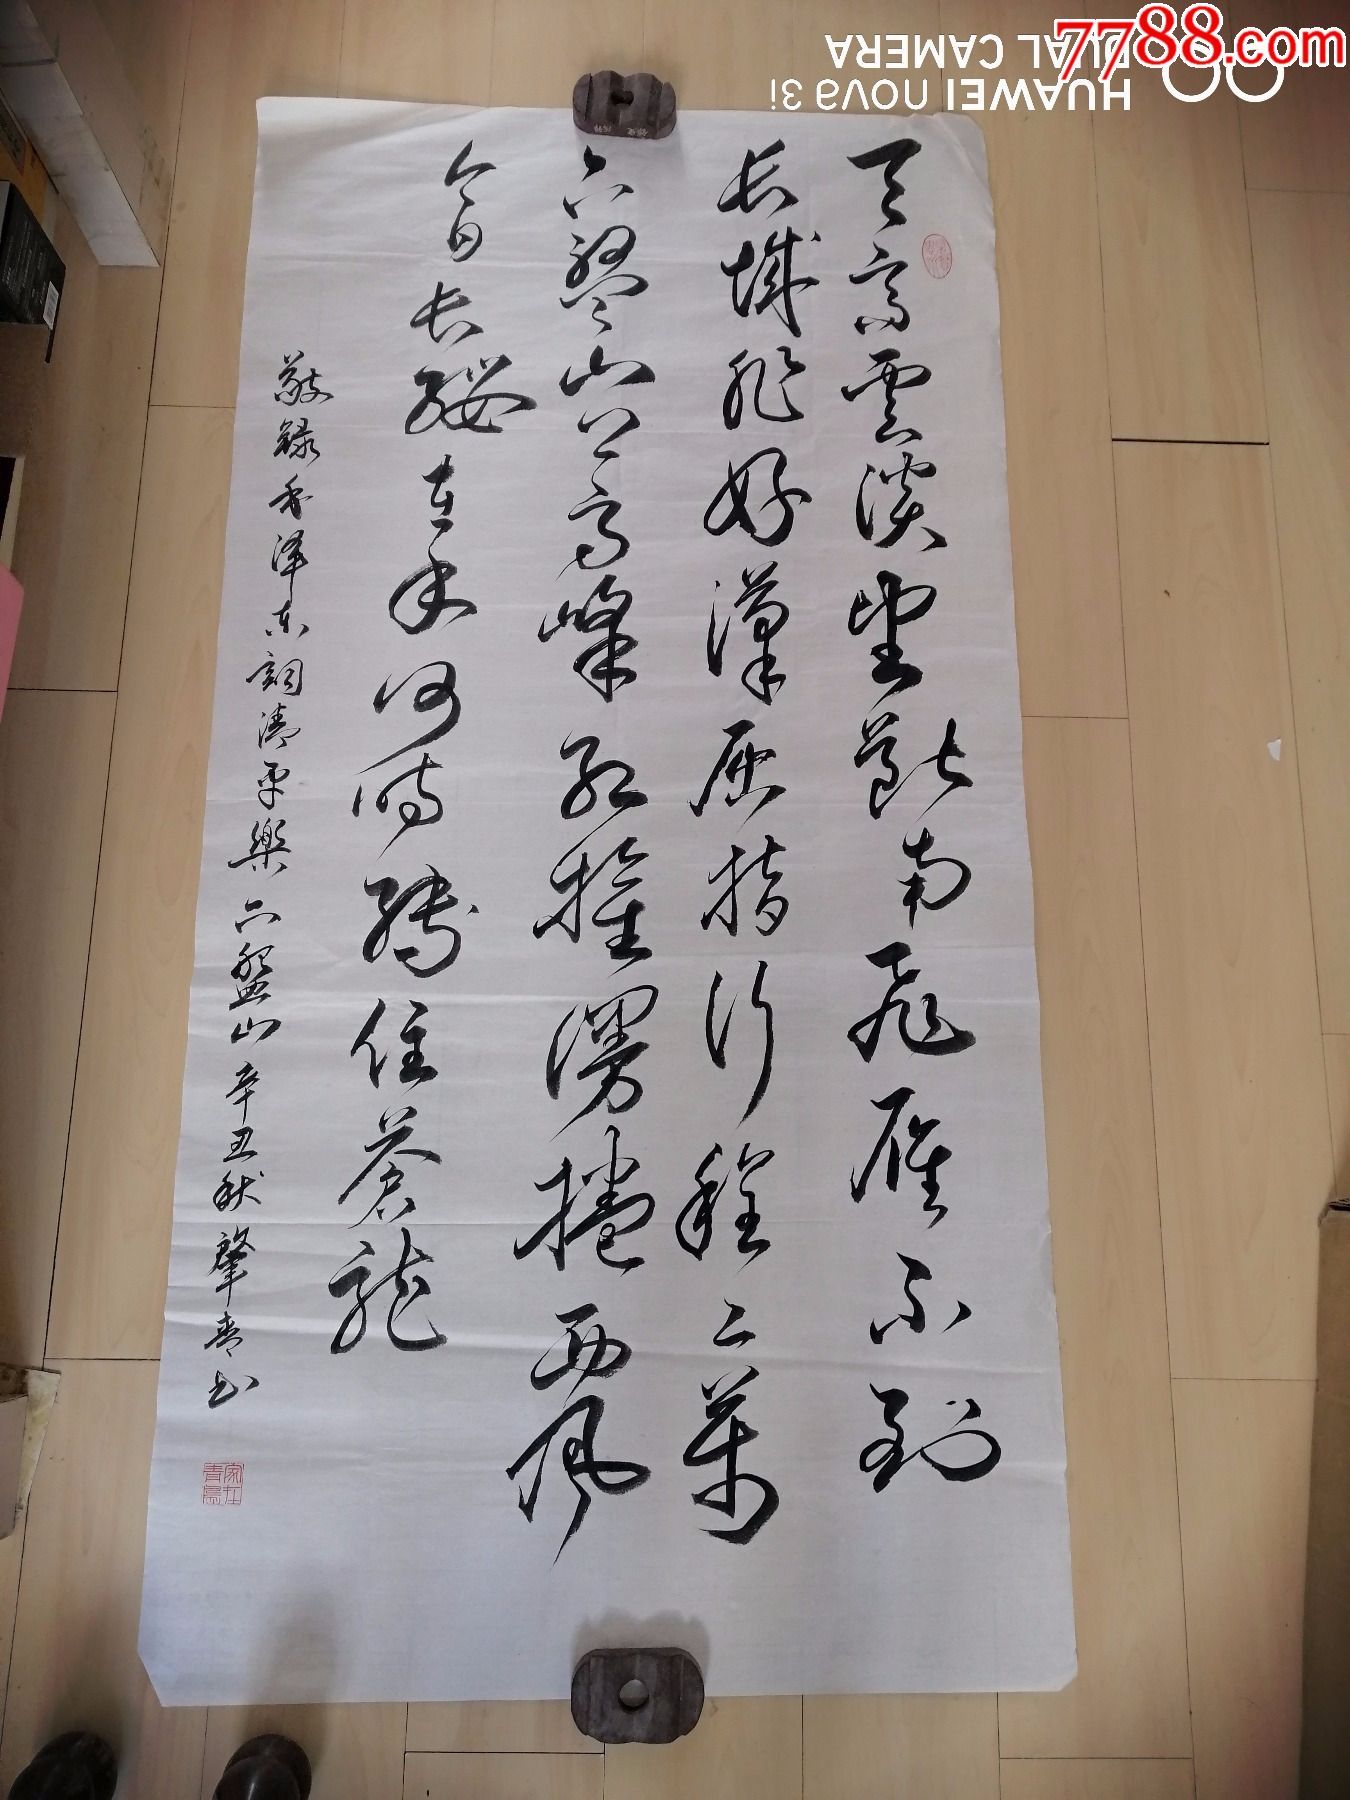 天高雲淡望斷南飛雁不到
長城非好漢屈指行程二萬
六盤山上高峰紅旗漫捲西風
今日長纓在手何時縛住蒼龍
敬錄毛澤東詞清平樂六盤山辛丑秋肇青书
7788.com
HUAWEI nova 3i
DUAL CAMERA